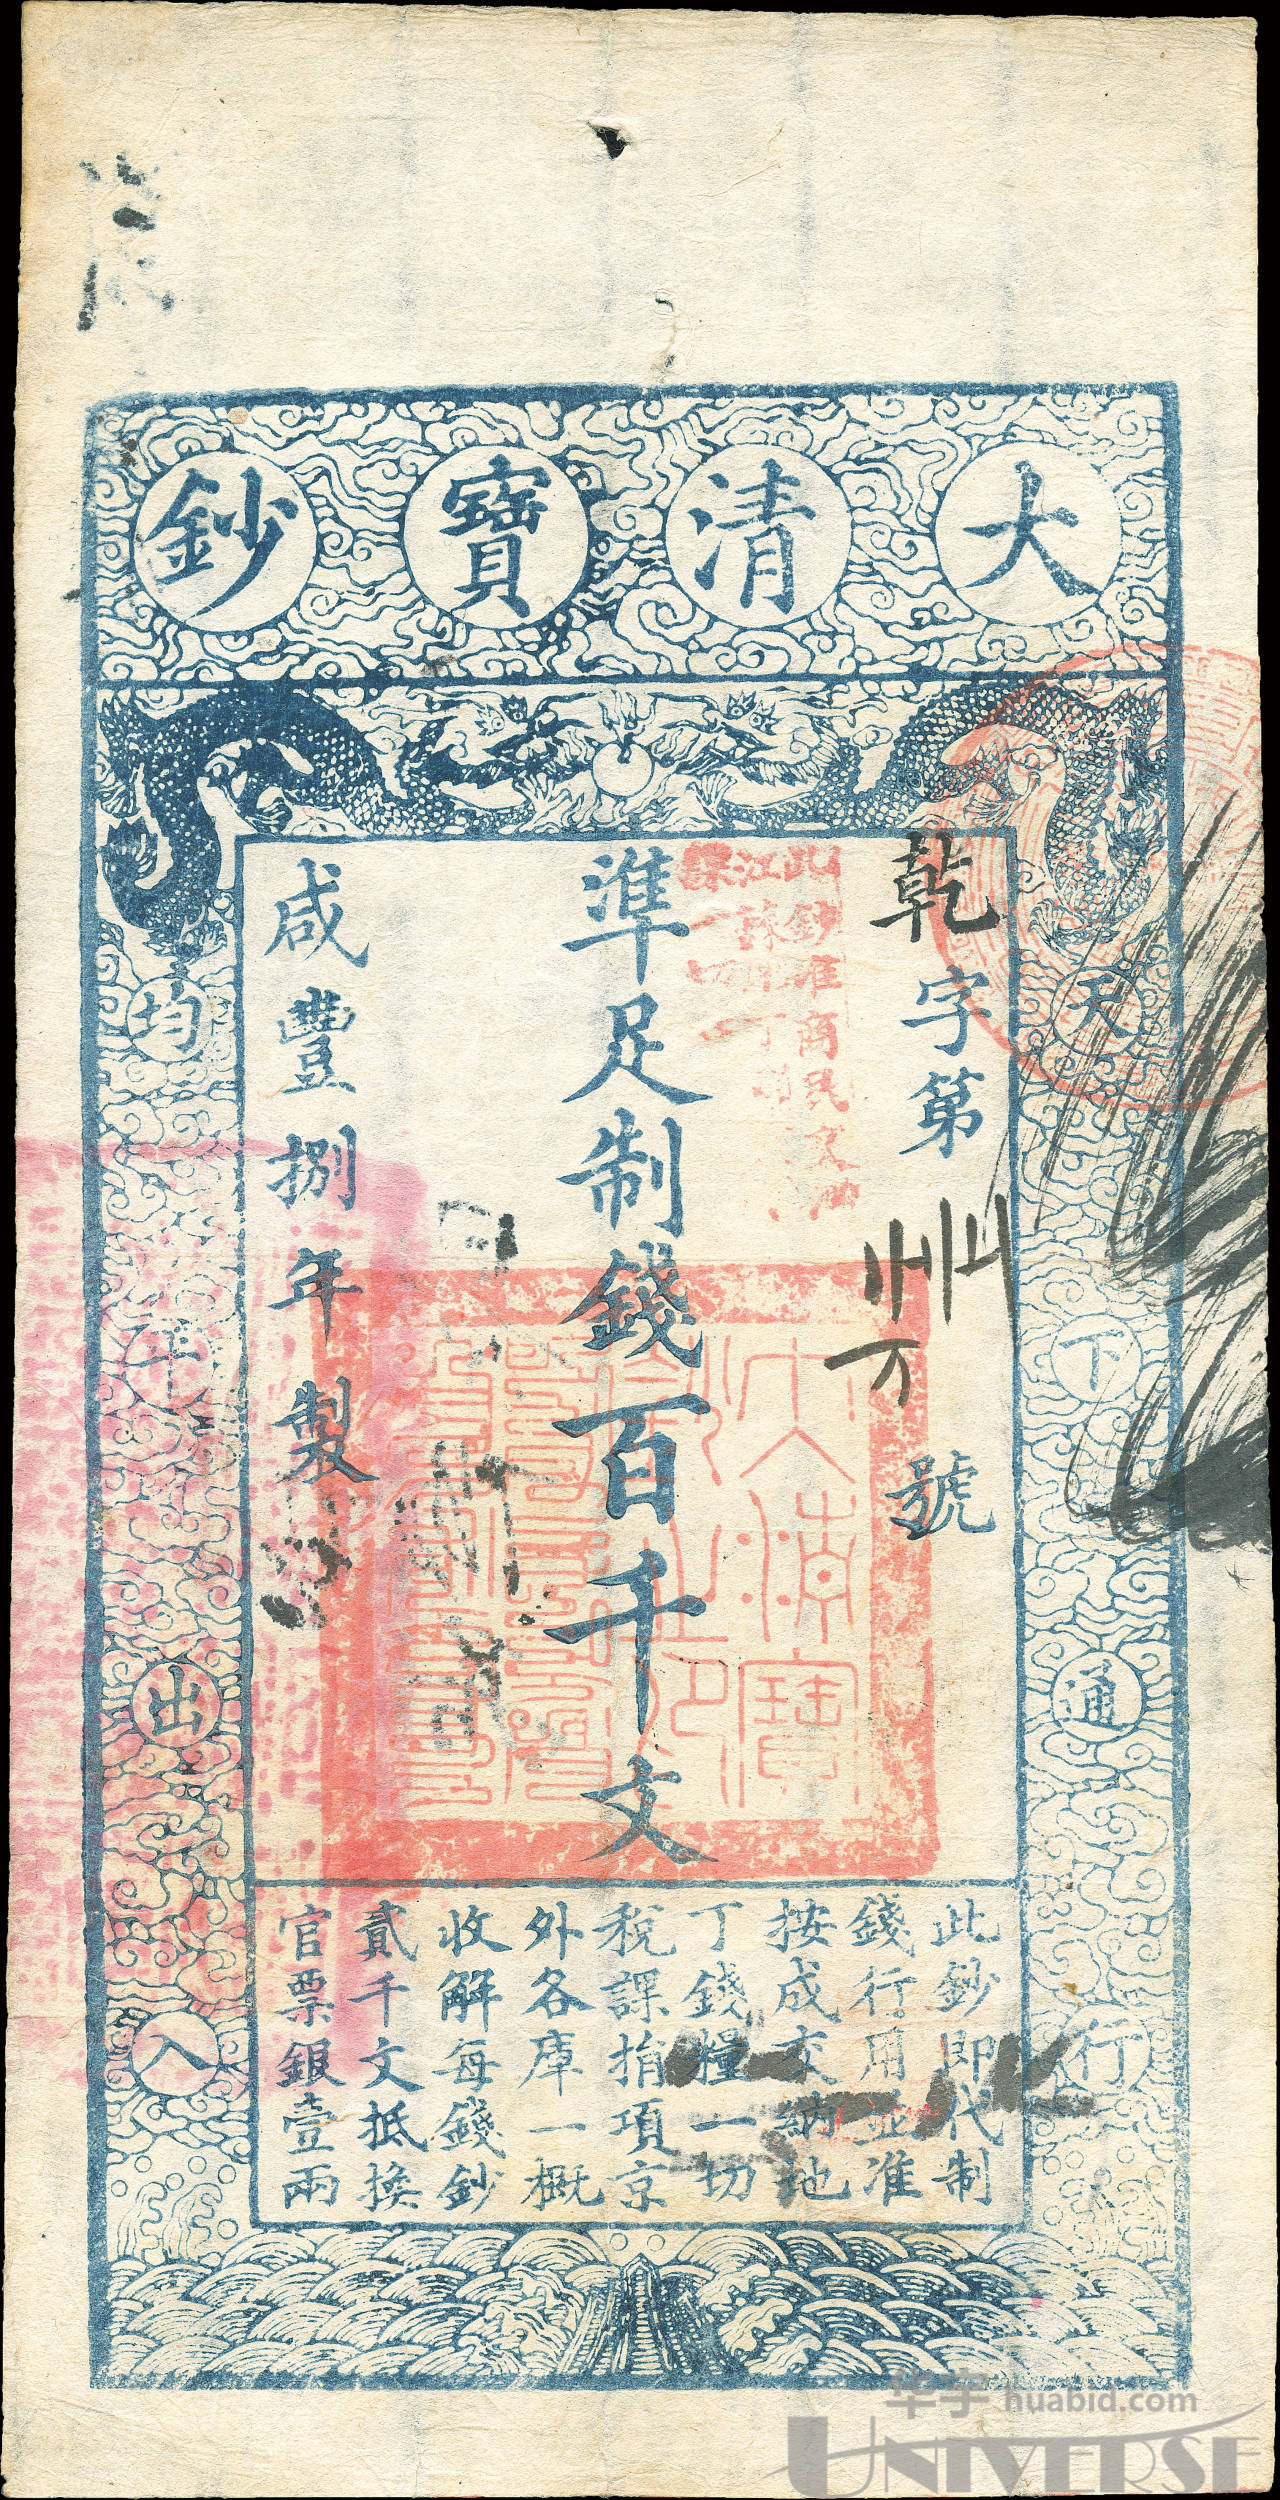 大清寶鈔
天下通行
均出入
乾字第
號
準足制錢百千文
咸豐捌年製
此鈔即代制
錢行用並准
按成交納地
丁錢糧一切
稅課捐項京
外各庫一概
收解每錢鈔
貳千文抵換
官票銀壹兩
此鈔准商民
江
一切
大清寶鈔之印
华宇 huabid.com
UNIVERSE